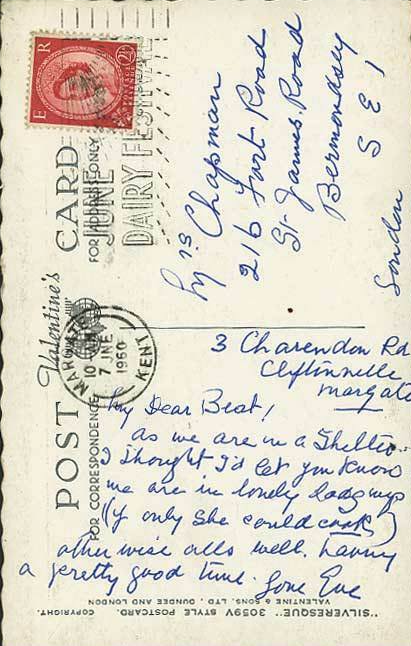 POST CARD
Valentine's
FOR CORRESPONDENCE
FOR ADDRESS ONLY
E R
2½D
POSTAGE REVENUE
JUNE
DAIRY FESTIVAL
MARGATE
10 AM
7 JNE
1960
KENT
Mrs Chapman
216 Fort Road
St James Road
Bermondsey
S E 1
London
3 Charendon Rd
Cliftinville
Margate
My Dear Beat!
As we are in a Shelter
I thought I'd let you know
we are in lovely lodgings
(if only she could cook)
otherwise alls well. having
a pretty good time. Love Eve
"SILVERESQUE" 3059V STYLE POSTCARD. COPYRIGHT.
VALENTINE & SONS, LTD., DUNDEE AND LONDON